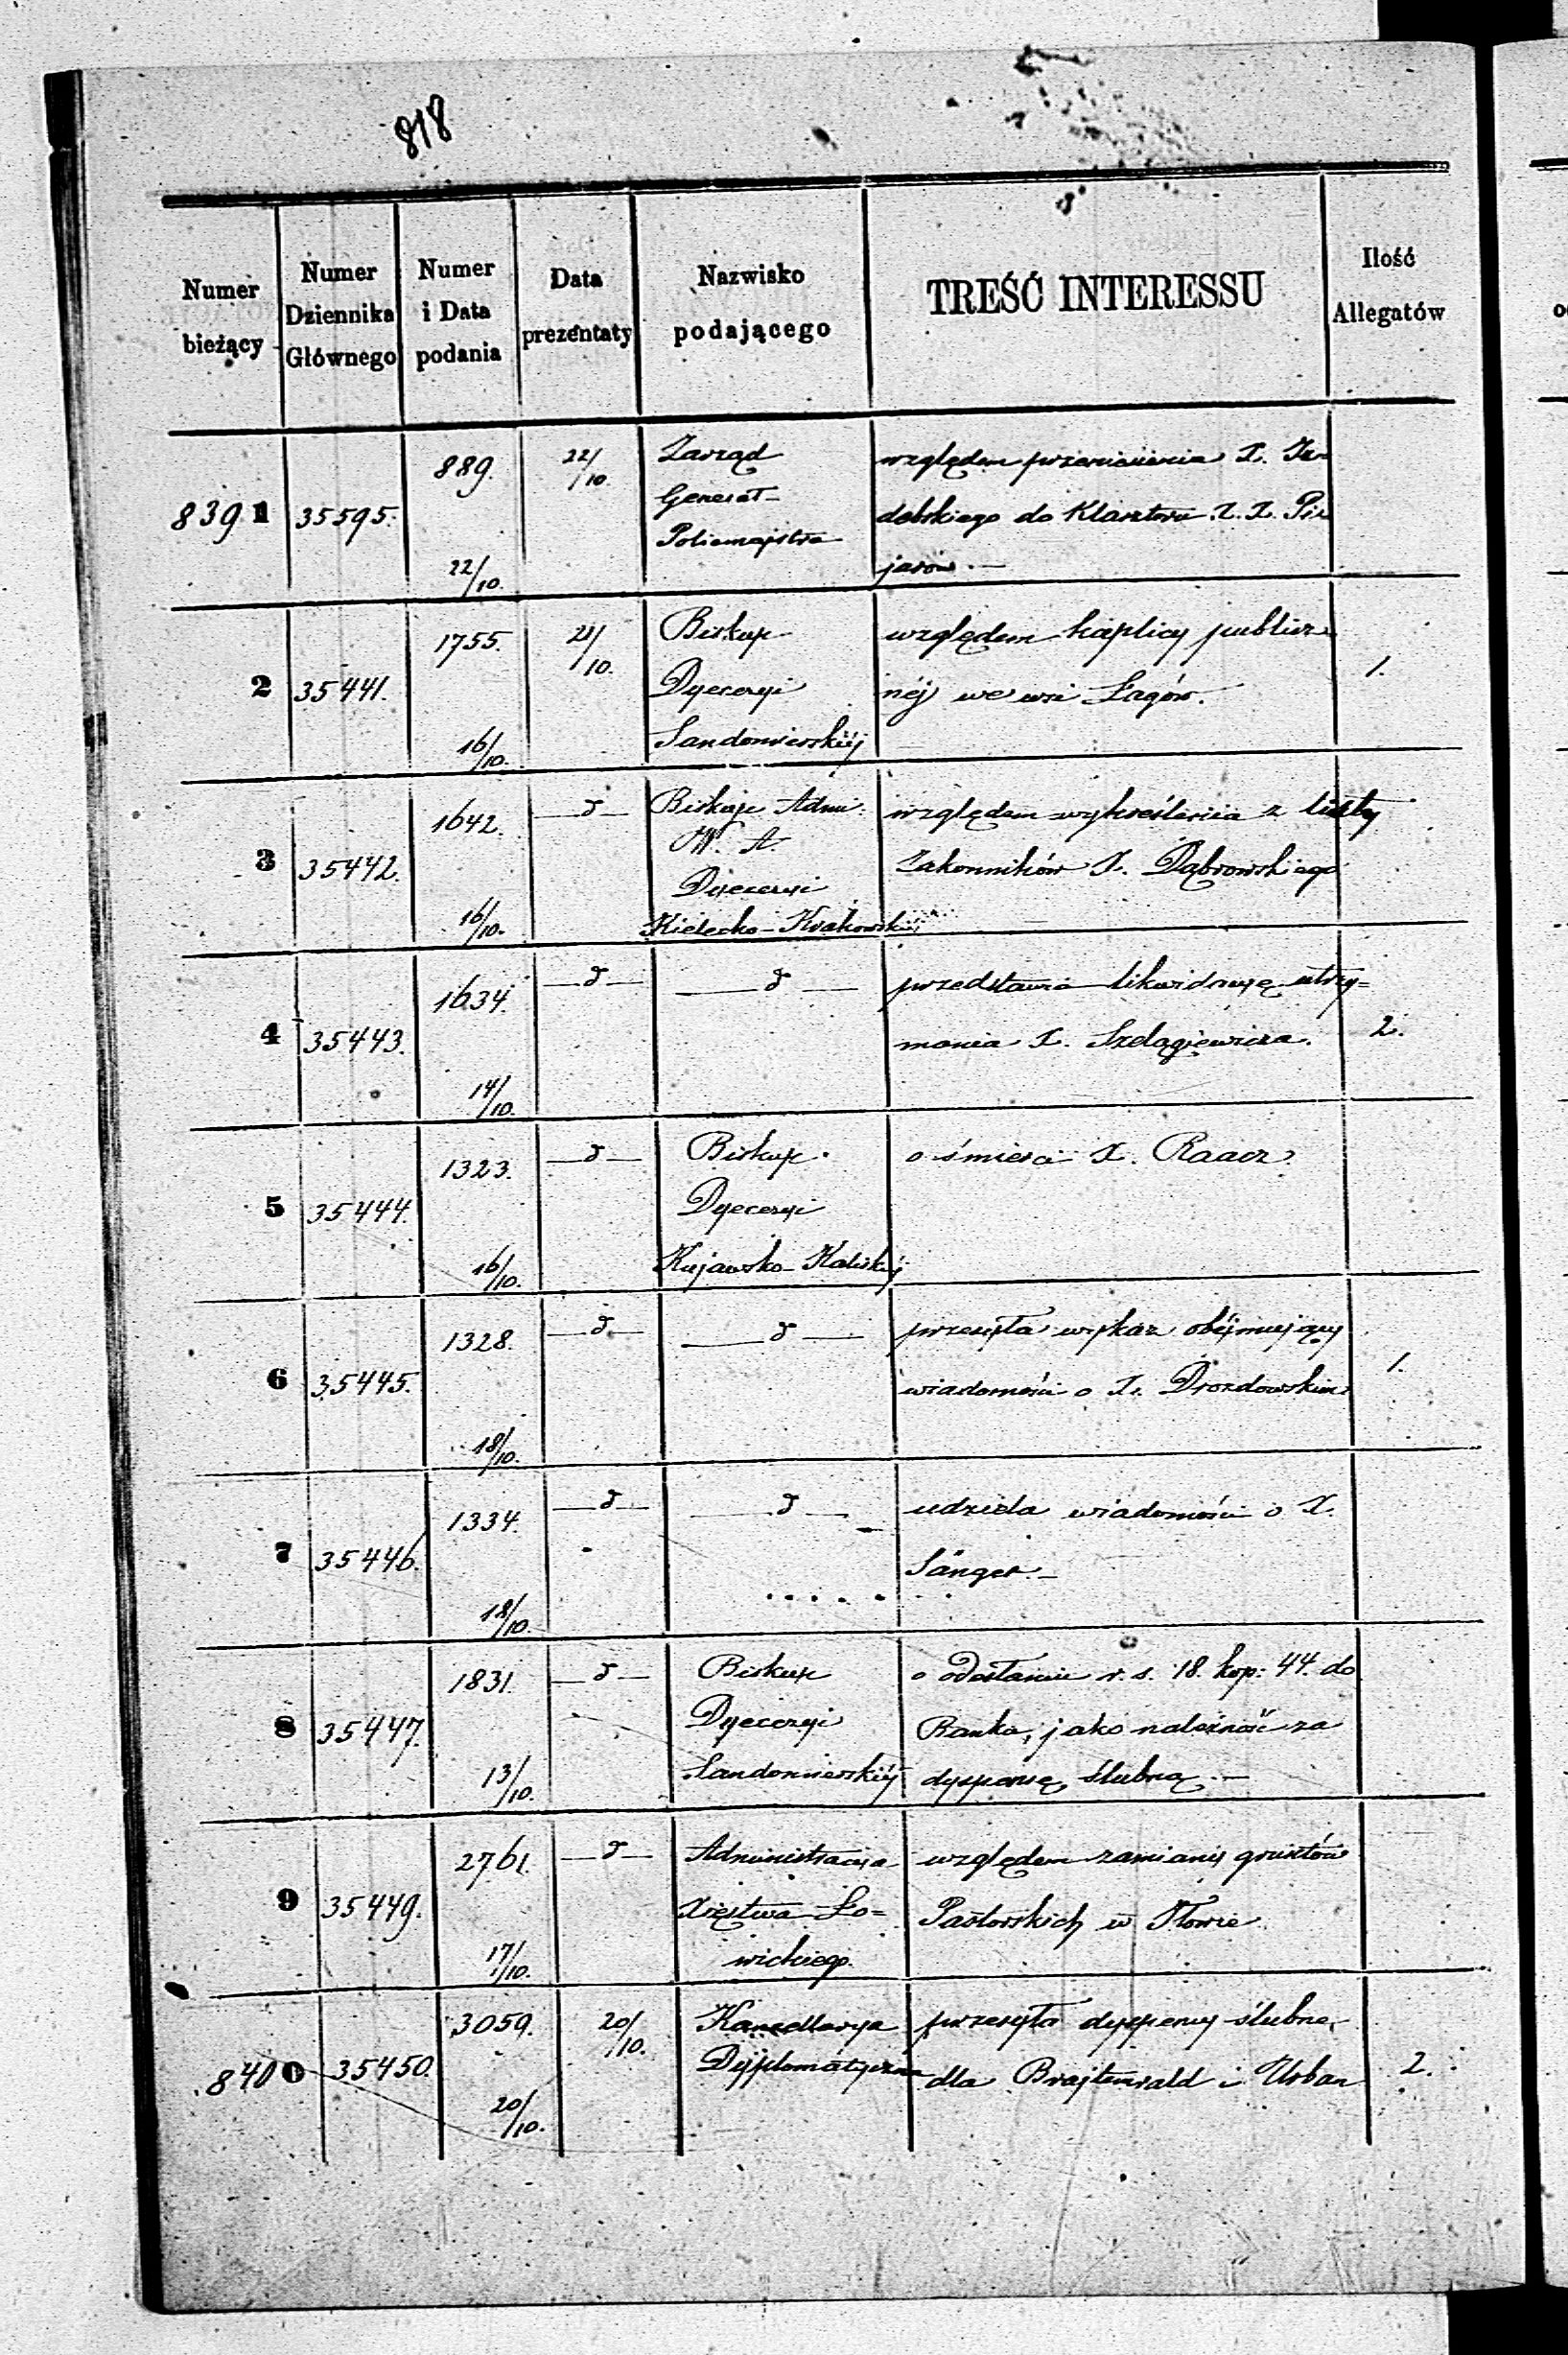 818
Numer bieżący
Numer Dziennika Głównego
Numer i Data podania
Data prezentaty
Nazwisko podającego
TREŚĆ INTERESSU
Ilość Allegatów
8391 35595. 889. 22/10. 22/10. Zarząd względem przeniesienia X.
Generał- debskiego do Klasztoru X. X. Pi
Policmajstra jarów.—
2 35441. 1755. 16/10. 21/10. Biskup względem kaplicy publicz 1.
Dyecezyi néj we wsi Łagów.
Sandomierskiéj
3 35442. 1642. 16/10. —d— Biskup Admi: względem wykreślenia z listy
W. A. Zakonników X. Dąbrowskiego
Dyecezyi
Kielecko-Krakowskiéj
4 35443. 1634. 14/10. —d— —d— przedstawia likwidacyę utrzy= 2.
mania X. Szelągiewicza.
5 35444. 1323. 16/10. —d— Biskup o śmierci X. Raacz.
Dyecezyi
Kujawsko-Kaliskiéj
6 35445. 1328. 18/10. —d— —d— przesyła wykaz obéjmujący 1.
wiadomości o X. Drozdowskim.
7 35446. 1334. 18/10. —d— —d— udziela wiadomości o X.
Sänger.—
8 35447. 1831. 13/10. —d— Biskup o odesłanie r. s. 18. kop: 44. do
Dyecezyi Banku, jako należność za
Sandomierskiéj dyspensę ślubną.—
9 35449. 2761. 17/10. —d— Administracya względem zamiany gruntów
Xięstwa Ło= Pastorskich w Iłowie
wickiego.
8400 35450. 3059. 20/10. 20/10. Kancellarya przesyła dyspensy ślubne 2.
Dyplomatyczna dla Brajtenwald i Urban